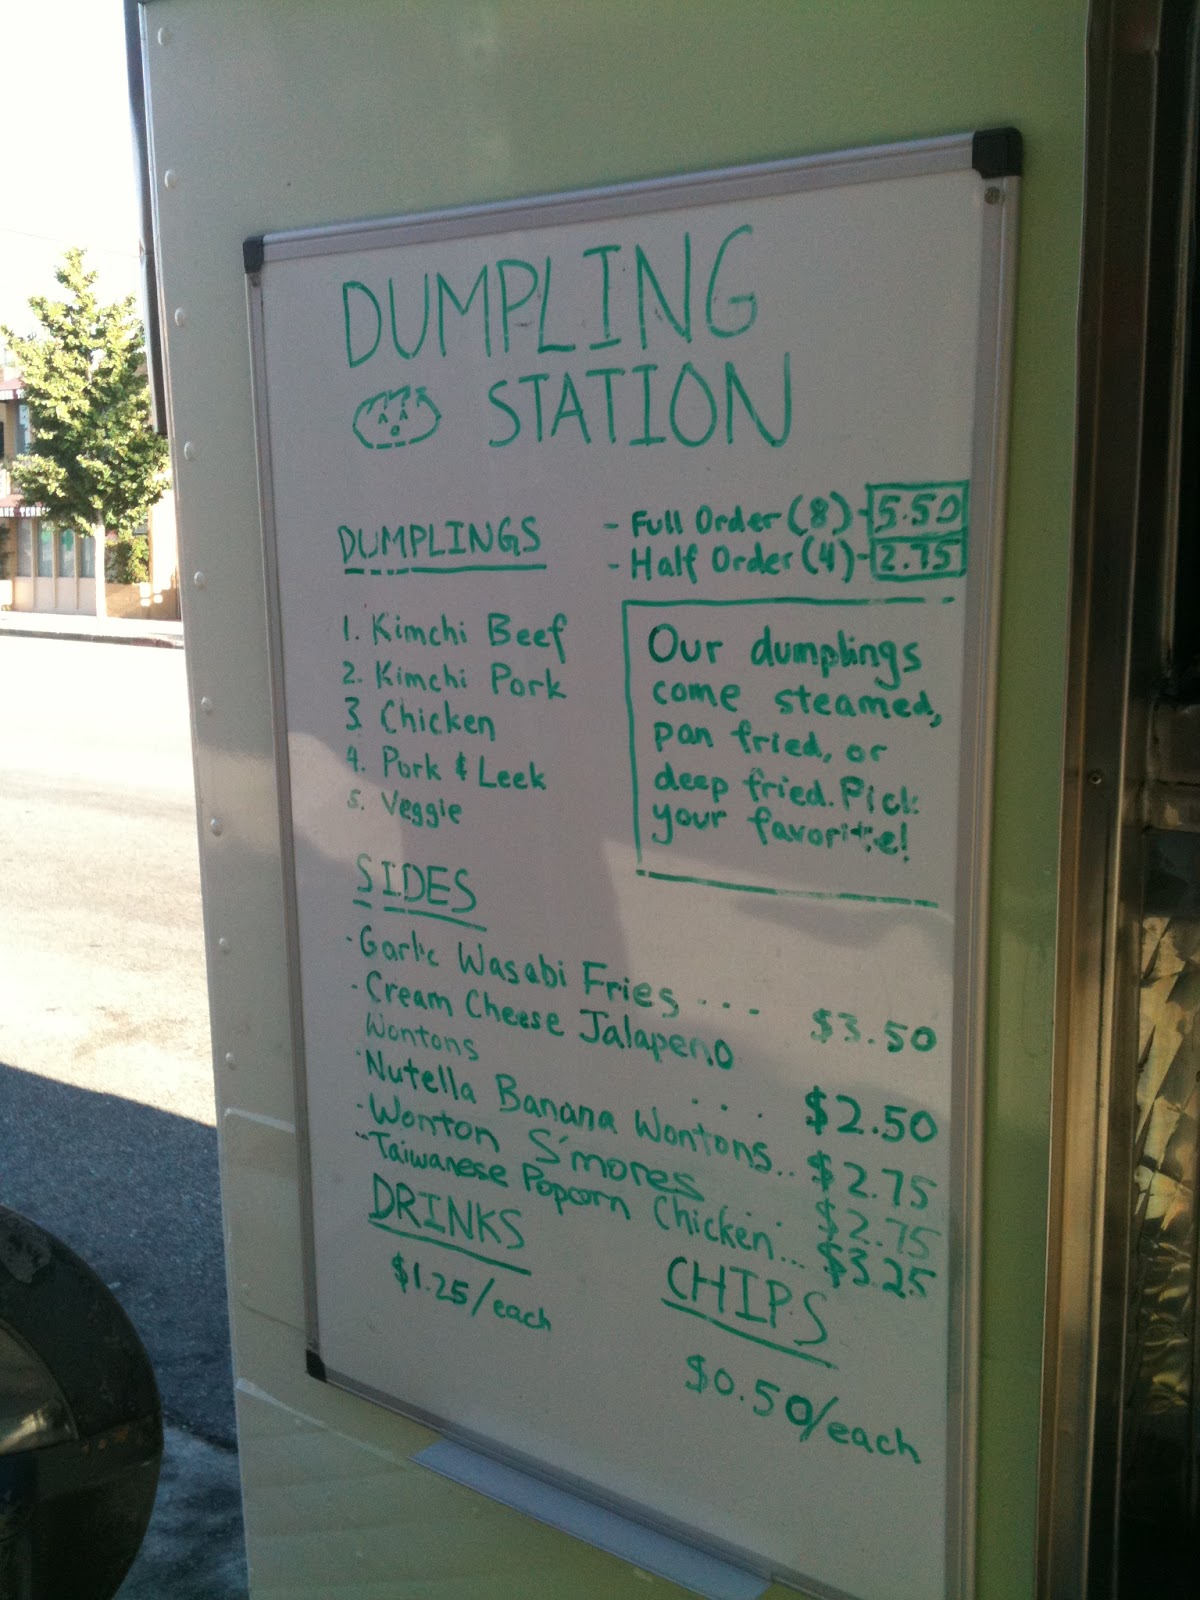 DUMPLING
STATION
DUMPLINGS
- Full Order (8) - 5.50
- Half Order (4) - 2.75
1. Kimchi Beef
2. Kimchi Pork
3. Chicken
4. Pork & Leek
5. Veggie
Our dumplings
come steamed,
pan fried, or
deep fried. Pick
your favorite!
SIDES
· Garlic Wasabi Fries .... $3.50
· Cream Cheese Jalapeno
Wontons .... $2.50
· Nutella Banana Wontons.. $2.75
· Wonton S'mores ... $2.75
· Taiwanese Popcorn Chicken... $3.25
DRINKS
$1.25/each
CHIPS
$0.50/each